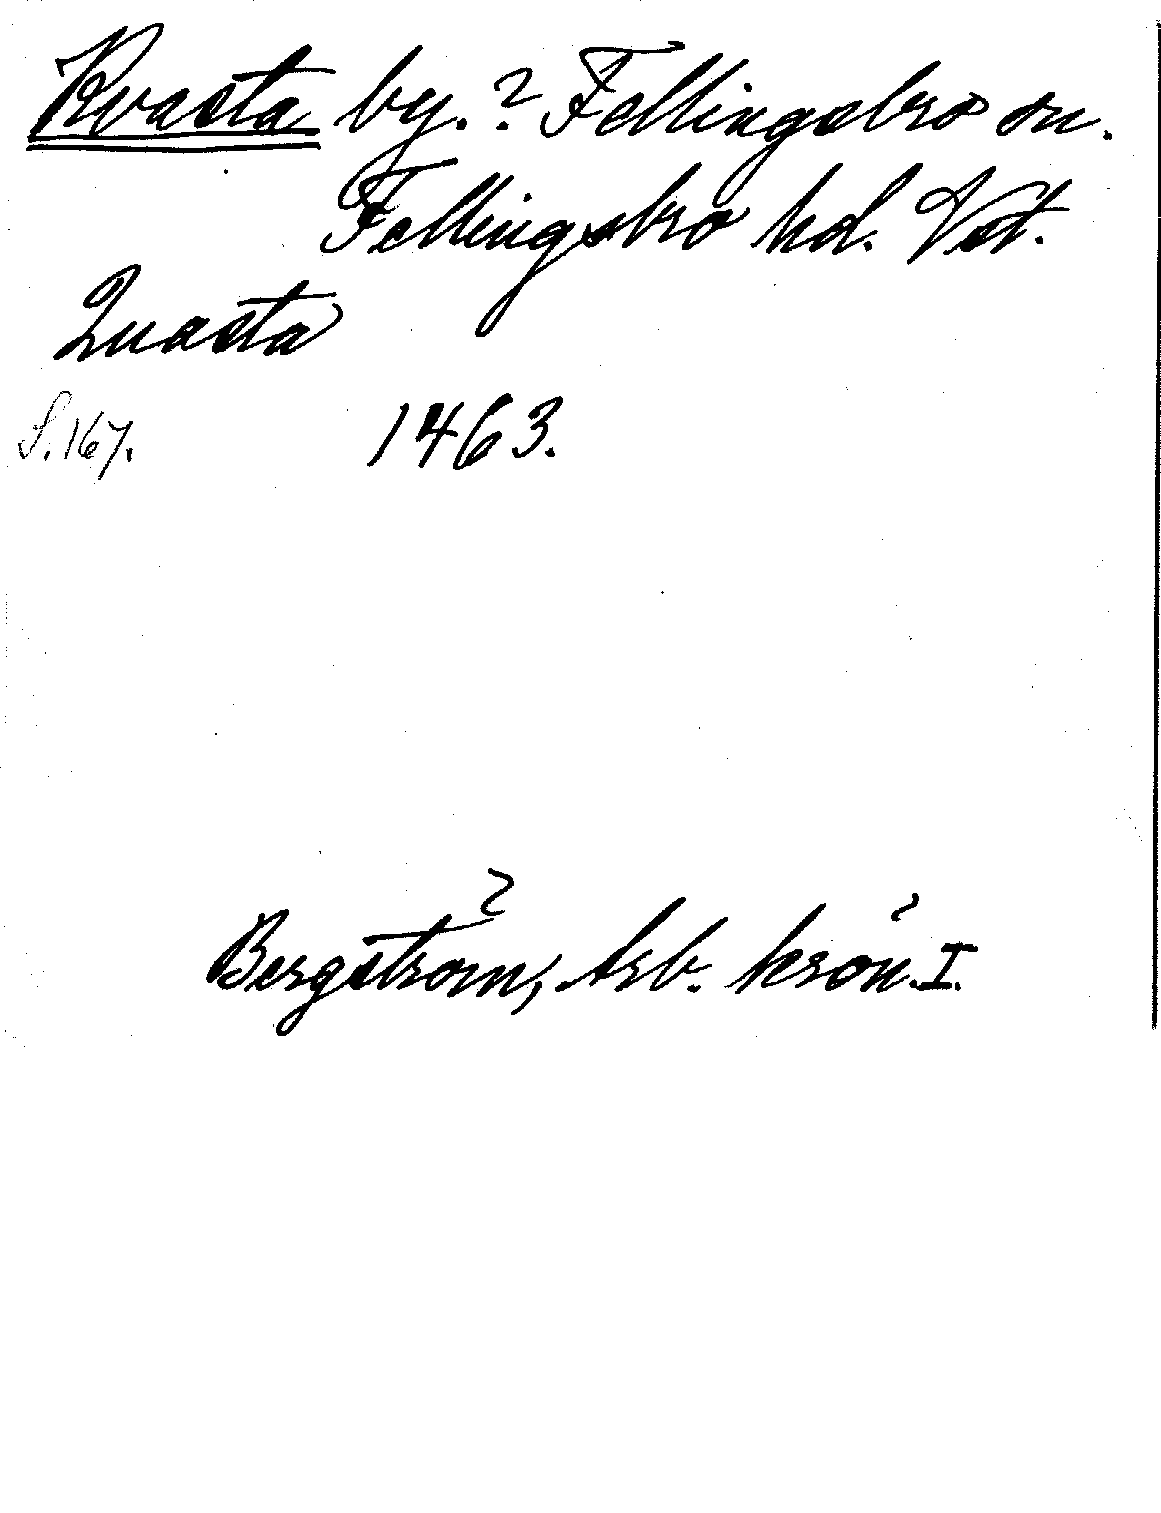 Kvasta by.? Fellingsbro sn.
Fellingsbro hd. Vst.
Quasta
S. 167. 1463.
Bergström, Arb. krön. I.